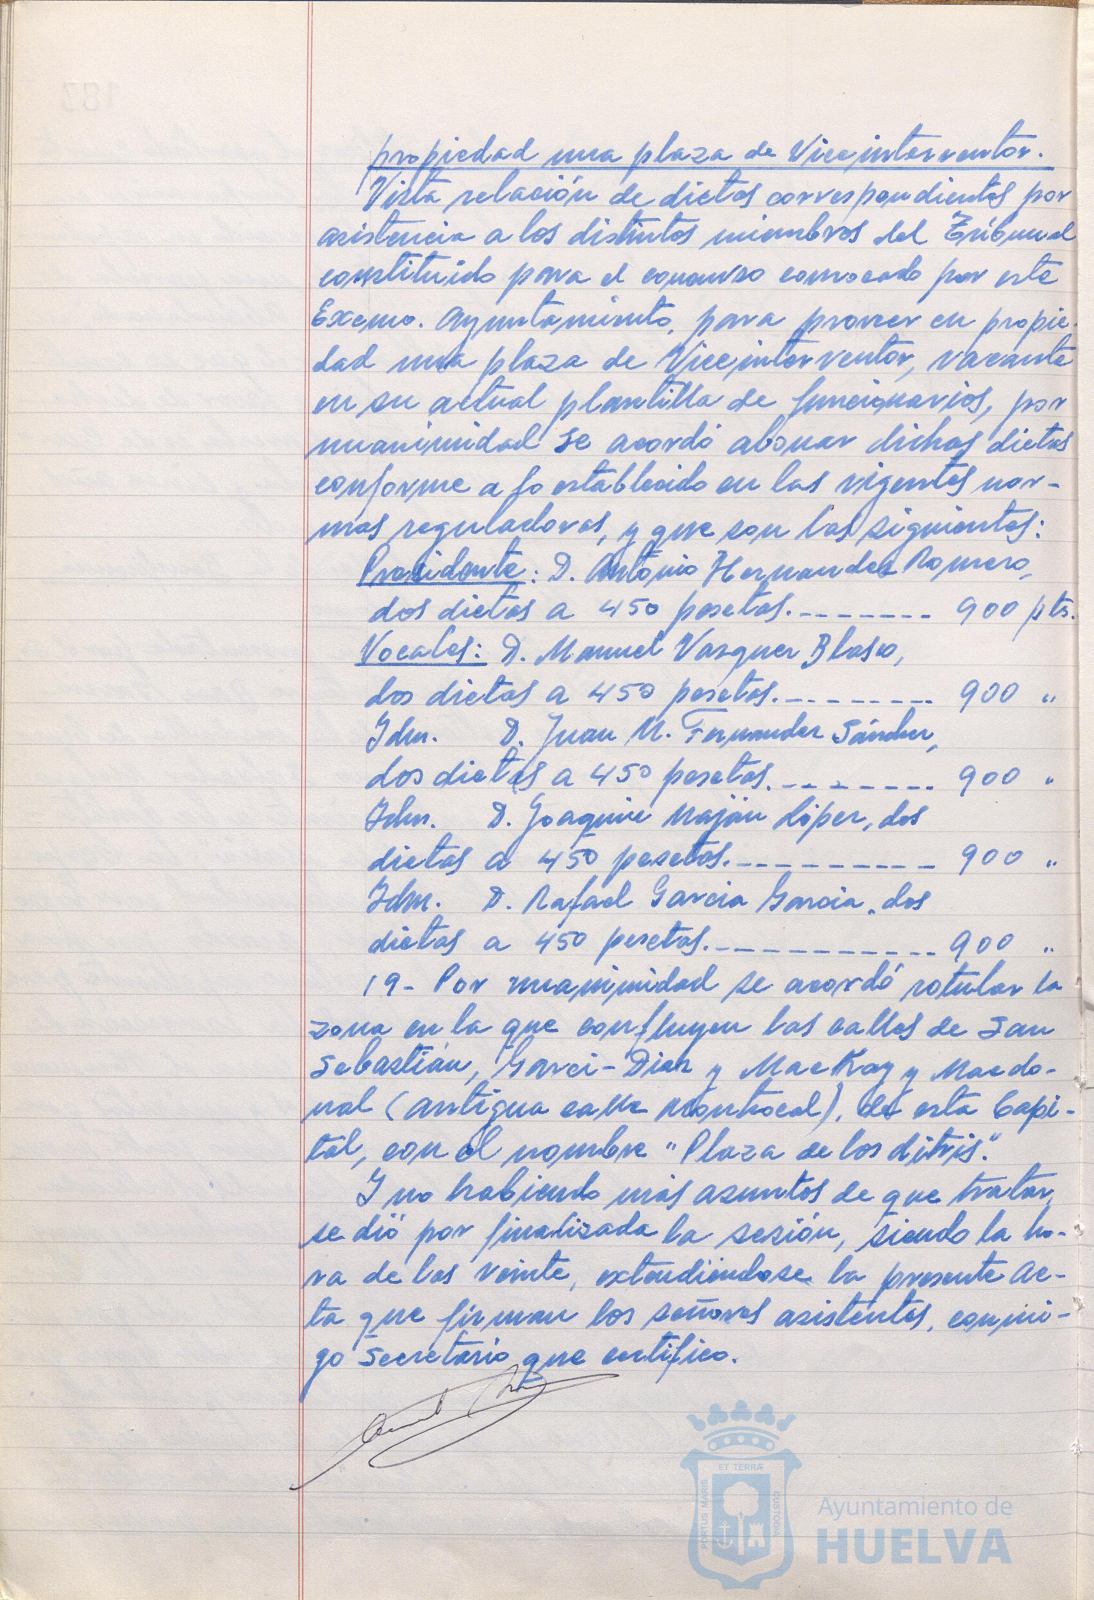 propiedad una plaza de Viceinterventor.
Vista relación de dietas correspondientes por
asistencia a los distintos miembros del Tribunal
constituido para el concurso convocado por este
Excmo. Ayuntamiento, para proveer en propie-
dad una plaza de Viceinterventor, vacante
en su actual plantilla de funcionarios, por
unanimidad se acordó abonar dichas dietas
conforme a lo establecido en las vigentes nor-
mas reguladoras, y que son las siguientes:
Presidente: D. Antonio Hernandez Romero,
dos dietas a 450 pesetas.------- 900 pts.
Vocales: D. Manuel Vazquez Blasco,
dos dietas a 450 pesetas.-------- 900 "
Idm. D. Juan M. Fernandez Sánchez,
dos dietas a 450 pesetas.-------- 900 "
Idm. D. Joaquin Maján López, dos
dietas a 450 pesetas.---------- 900 "
Idm. D. Rafael Garcia Garcia, dos
dietas a 450 pesetas.---------- 900 "
19- Por unanimidad se acordó rotular la
zona en la que confluyen las calles de San
Sebastián, Garci-Diaz y MacKay y Macdo-
nal (antigua calle Montrocal), de esta Capi-
tal, con el nombre "Plaza de los Litris".
Y no habiendo más asuntos de que tratar,
se dió por finalizada la sesión, siendo la ho-
ra de las veinte, extendiéndose la presente Ac-
ta que firman los señores asistentes, conmi-
go Secretario que certifico.
ET TERRÆ
PORTUS MARIS
CUSTODIA
Ayuntamiento de
HUELVA